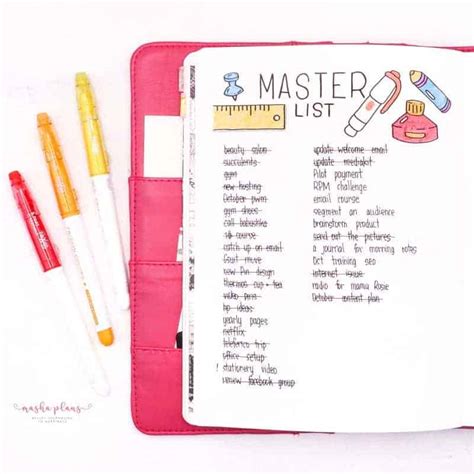 MASTER
LIST
beauty salon
succulents
gym
new hosting
October pwm
gym shoes
call babushka
course
catch up on email
fruit move
new Pin design
thermos cup + tea
video pins
hp ideas
yearly pages
netflix
trip
office setup
! stationery video
renew facebook group
update welcome email
update mediakit
Pilot payment
RPM challenge
email course
segment an audience
brainstorm product
send out the pictures
a journal for morning notes
Oct training seo
internet issue
radio for mama Rosie
October content plan
masha plans